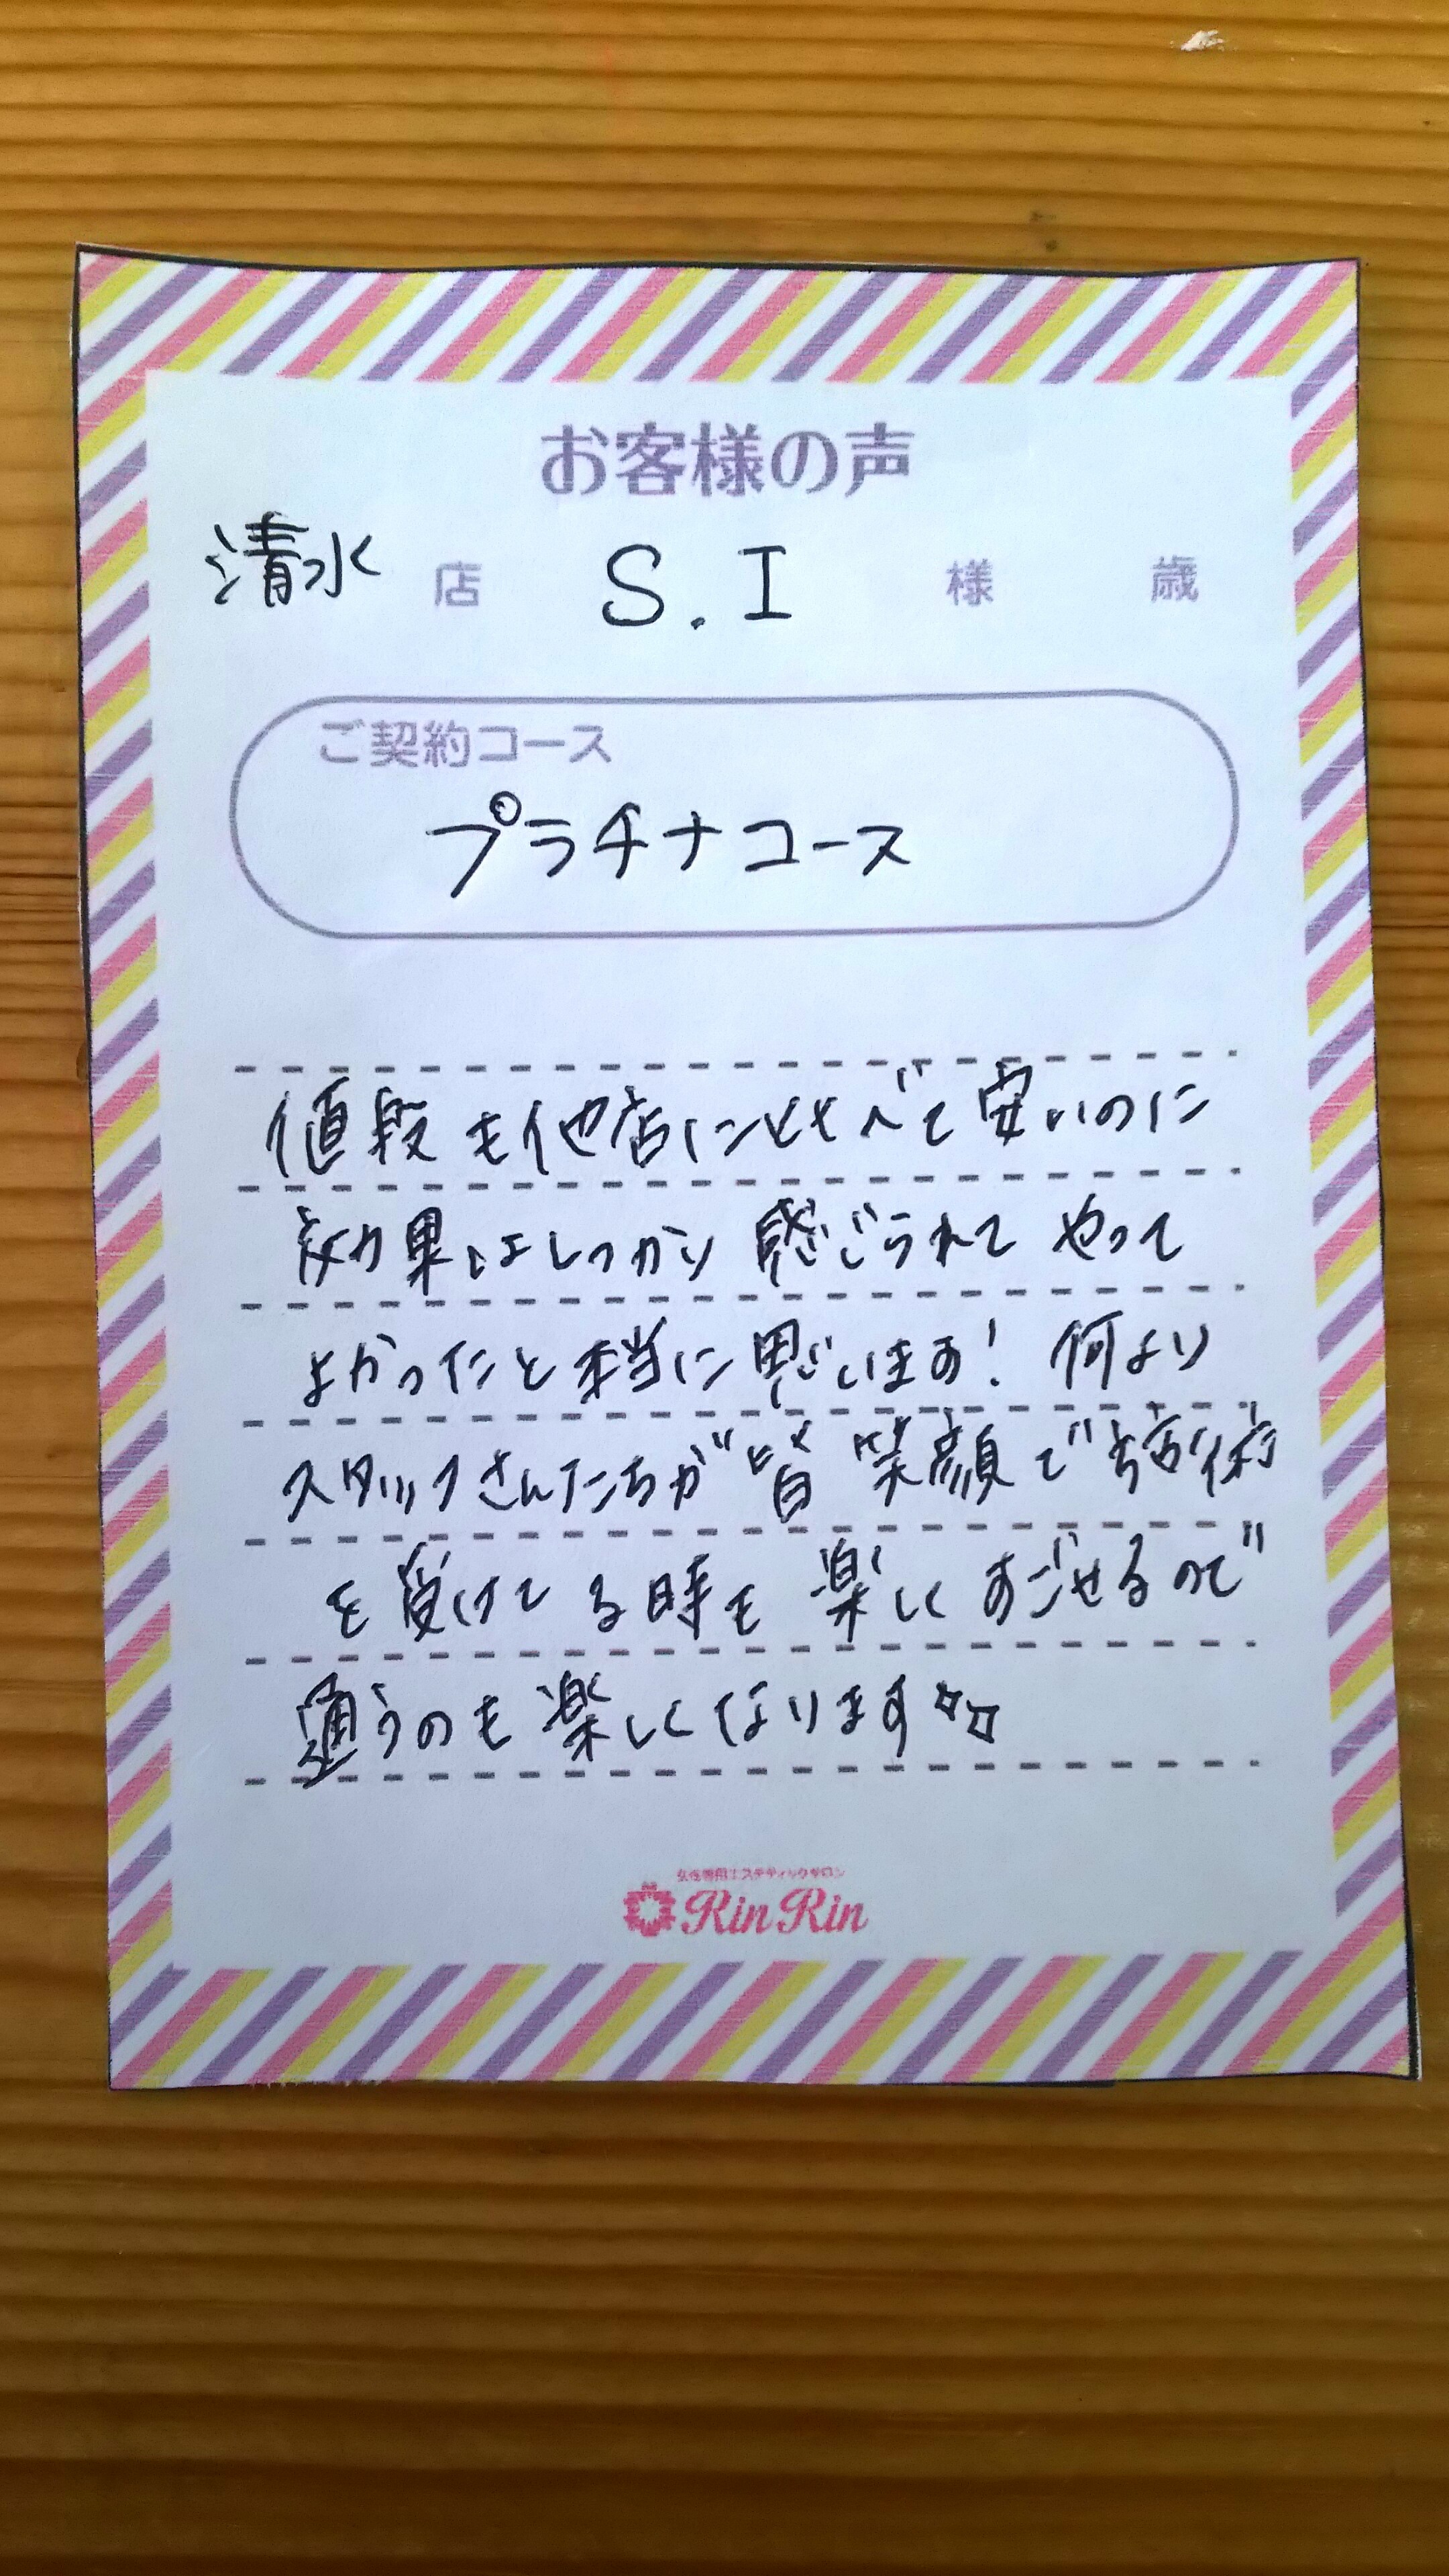 お客様の声
清水 店 S.I 様 歳
ご契約コース
プラチナコース
値段も他店にくらべて安いのに
効果はしっかり感じられて やって
よかったと本当に思います! 何より
スタッフさんたちが皆 笑顔で施術
を受けてる時も楽しくすごせるので
通うのも楽しくなります☆☆
女性専用エステティックサロン
RinRin